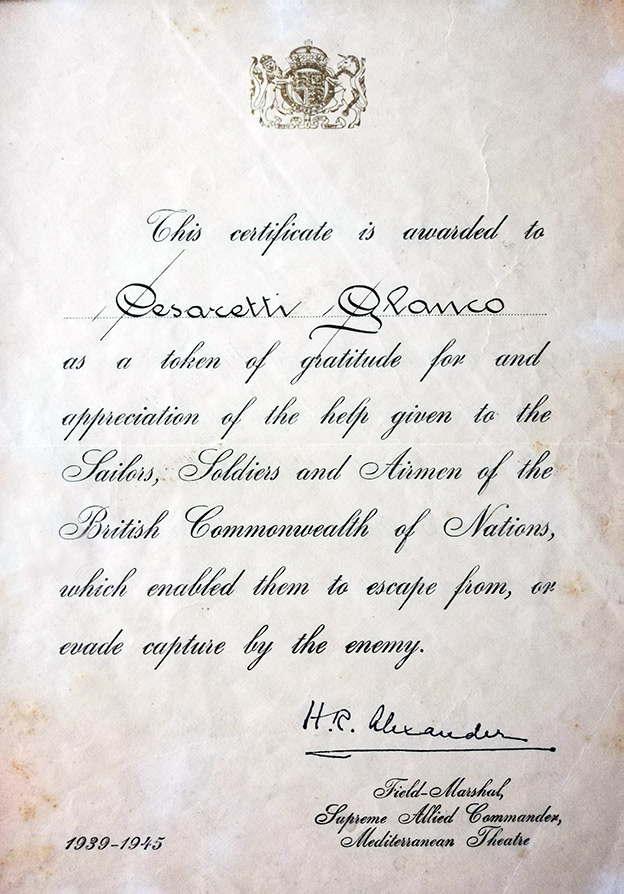 This certificate is awarded to
Cesaretti Glanco
as a token of gratitude for and
appreciation of the help given to the
Sailors, Soldiers and Airmen of the
British Commonwealth of Nations,
which enabled them to escape from, or
evade capture by the enemy.
H.R. Alexander
Field-Marshal,
Supreme Allied Commander,
Mediterranean Theatre
1939-1945